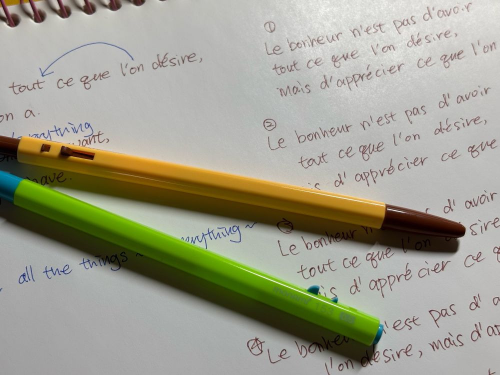 tout ce que l'on désire,
on a.
all the things ~ everything ~
①
Le bonheur n'est pas d'avoir
tout ce que l'on désire,
mais d'apprécier ce que l'on
②
Le bonheur n'est pas d'avoir
tout ce que l'on désire,
d'apprécier ce que
③
Le bonheur n'est pas d'avoir
tout ce que l'on désire
d'apprécier ce que
④
Le bonheur n'est pas d'
l'on désire, mais d'ap